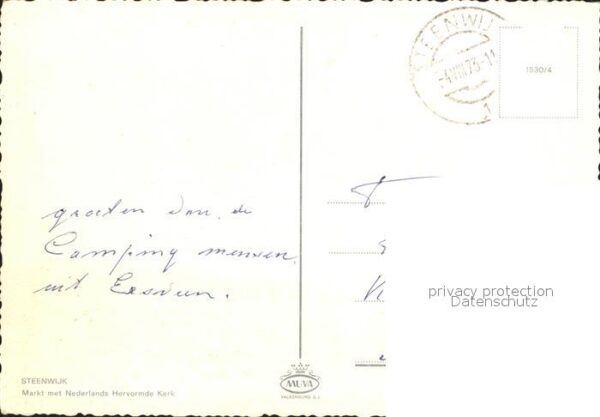 STEENWIJK
-4.VIII.73-11
1530/4
groeten van de
Camping mensen
uit
privacy protection
Datenschutz
MUVA
VALKENBURG Z.L.
STEENWIJK
Markt met Nederlands Hervormde Kerk